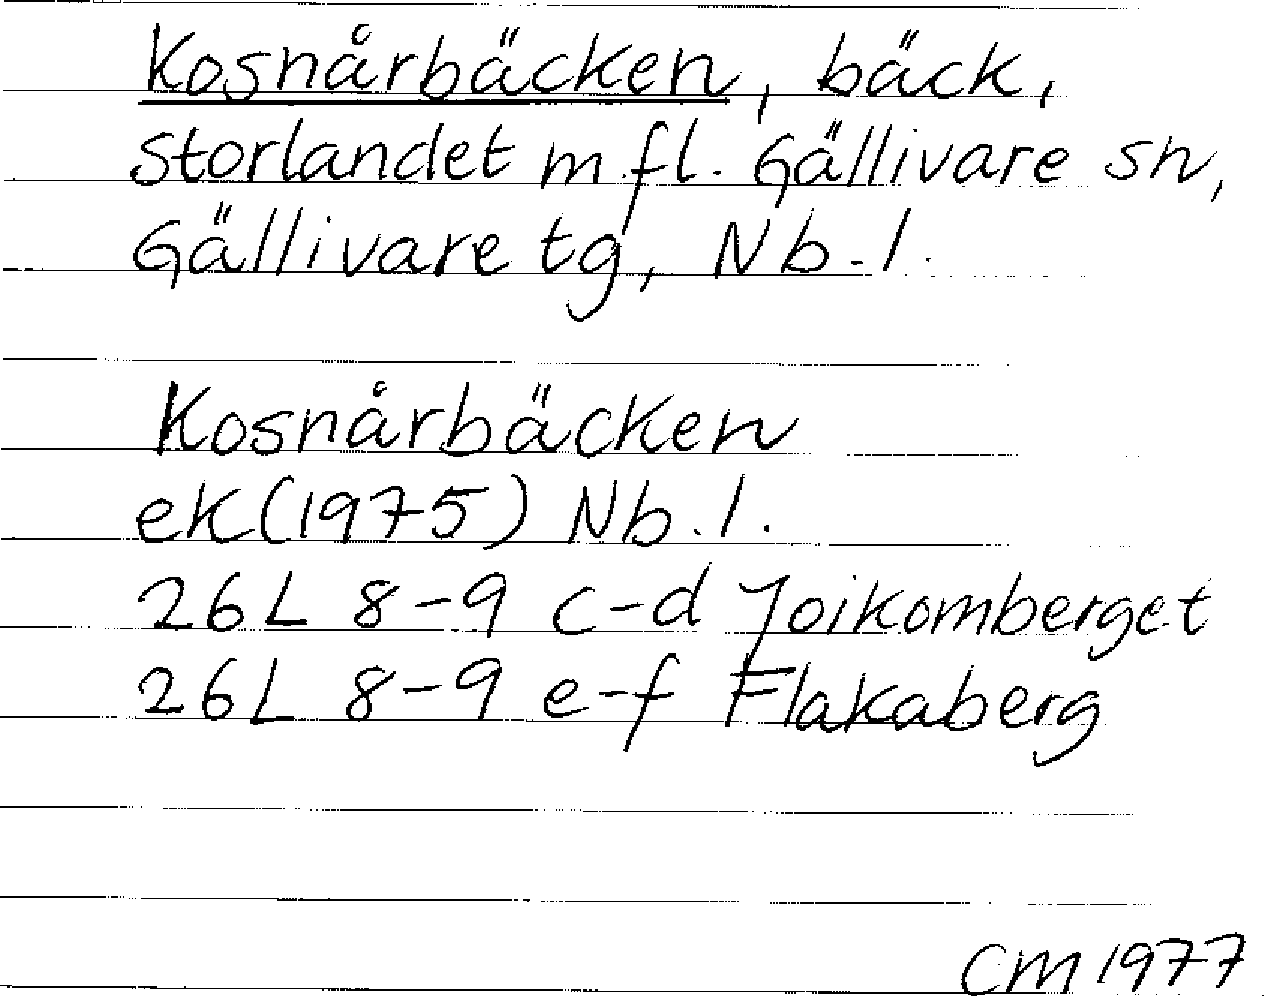 Kosnårbäcken, bäck,
storlandet m fl. Gällivare sn,
Gällivare tg, Nb.l.
Kosnårbäcken
ek(1975) Nb.l.
26L 8-9 c-d Joikomberget
26L 8-9 e-f Flakaberg
CM 1977